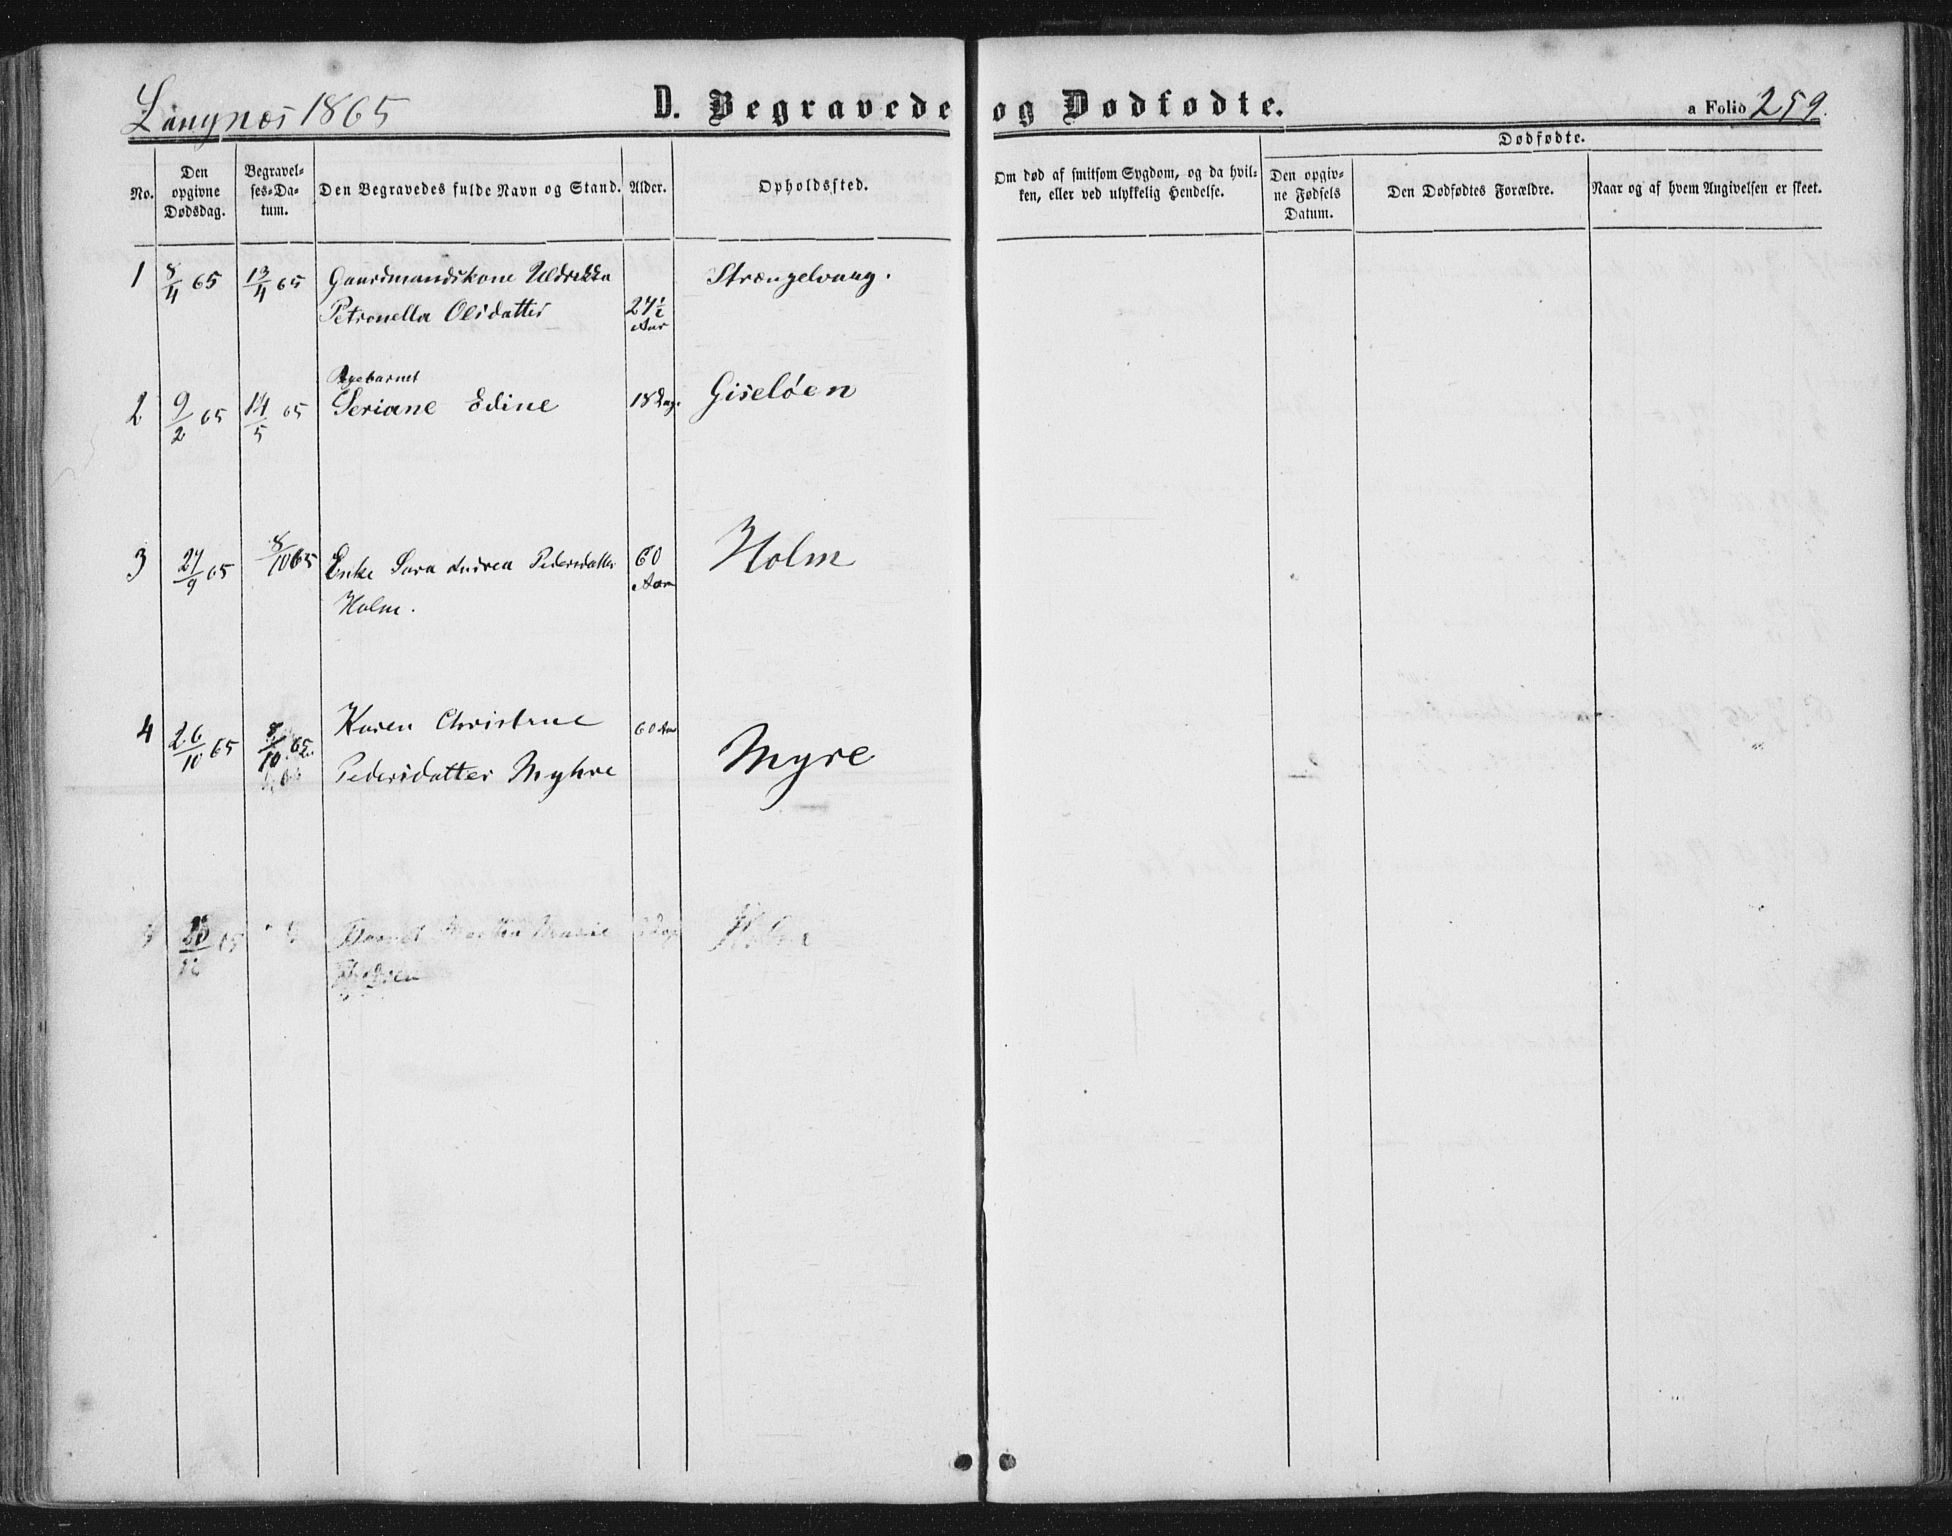 Langnæs 1865
D. Begravede og Dødfødte.
a Folio 259.
Dødfødte.
No.
Den opgivne Dødsdag.
Begravelses-Datum.
Den Begravedes fulde Navn og Stand.
Alder.
Opholdssted.
Om død af smitsom Sygdom, og da hvilken, eller ved ulykkelig Hendelse.
Den opgivne Fødsels Datum.
Den Dødfødtes Forældre.
Naar og af hvem Angivelsen er skeet.
1 8/4 65 13/4 65 Gaardmandskone Uldrikka Strængelvaag.
Petronella Olsdatter 27½ Aar
2 9/2 65 14/5 65 Seriane Edine 18 Dag. Giseløen
3 27/9 65 8/10 65 Enke Sara Andrea Pedersdatter 60 Aar Holm
Holm.
4 26/10 65 8/10 65 Karen Christine 60 Aar Myre
Pedersdatter Myhre
65 Martha Marie Holm